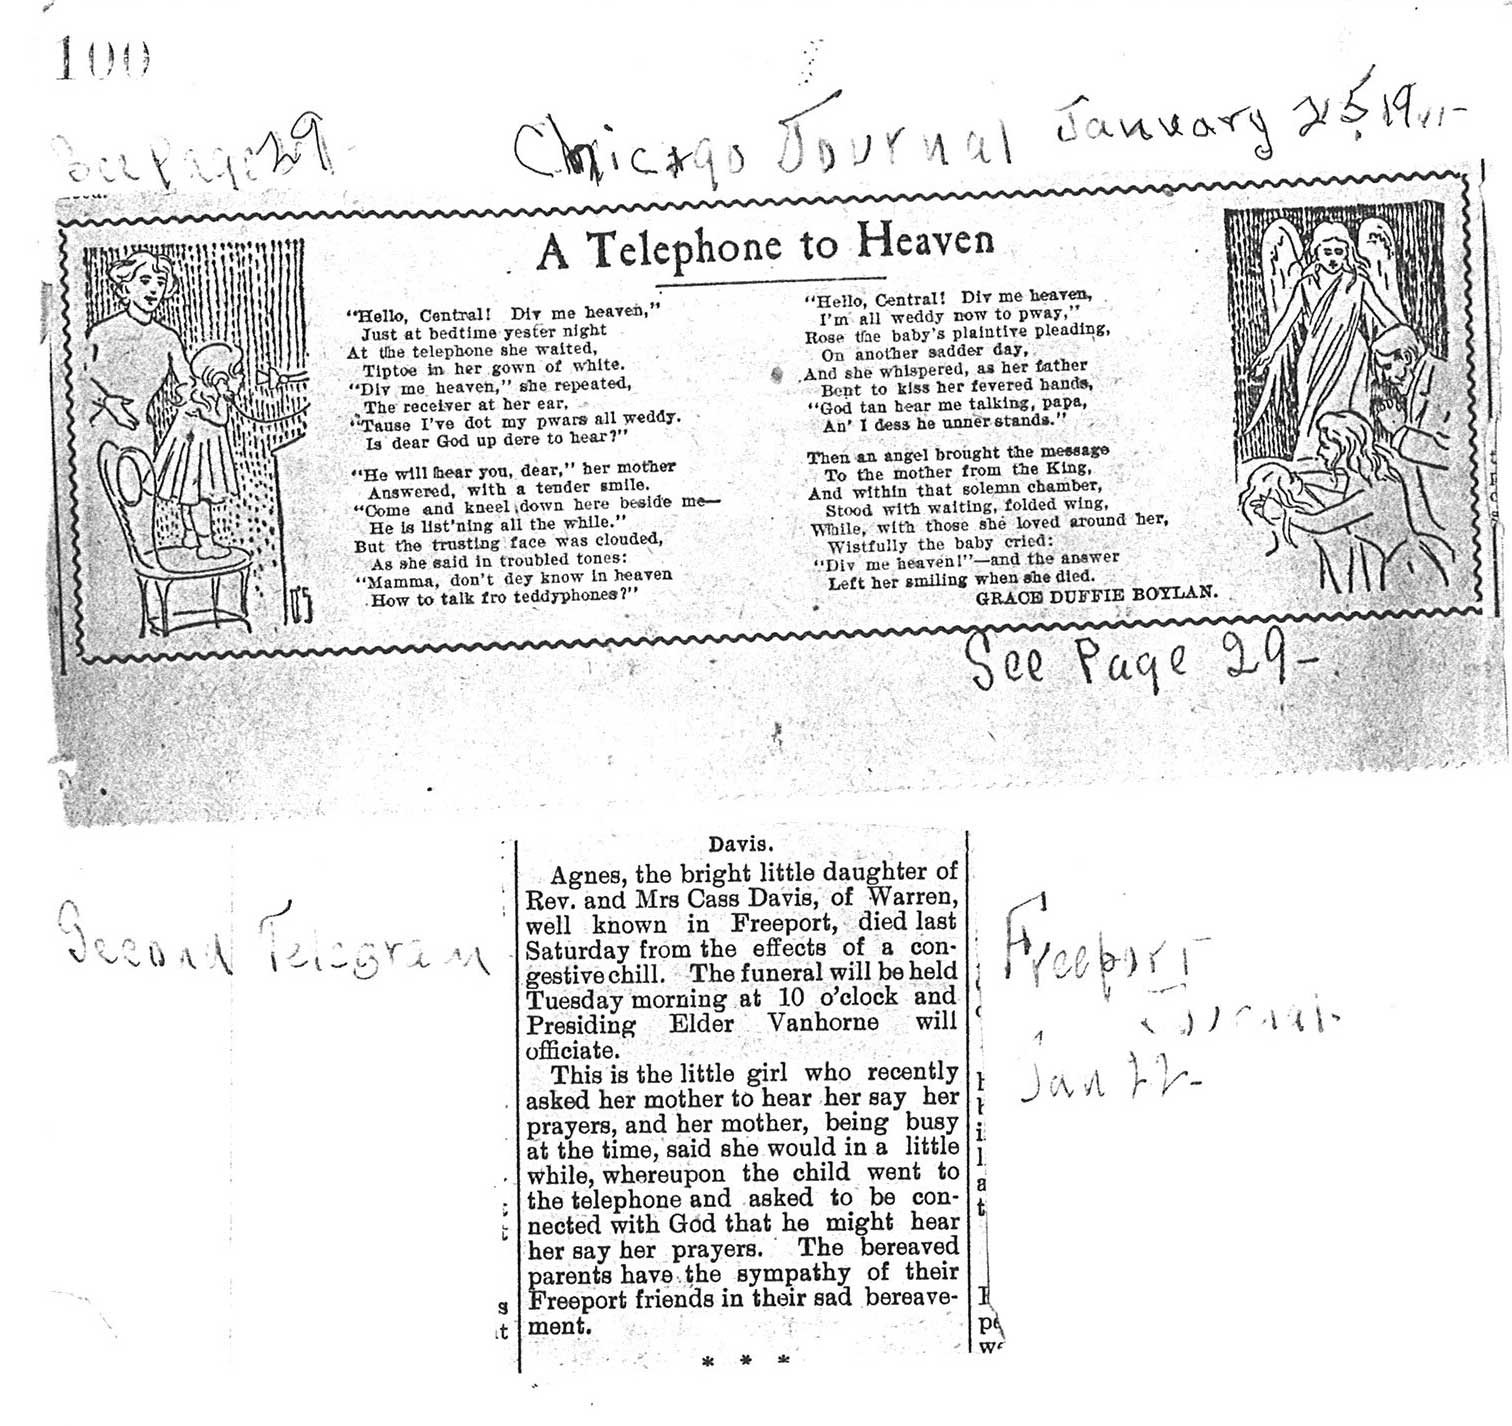 100
See Page 29-
Chicago Journal January 25, 19
A Telephone to Heaven
"Hello, Central! Div me heaven,"
Just at bedtime yester night
At the telephone she waited,
Tiptoe in her gown of white.
"Div me heaven," she repeated,
The receiver at her ear,
"'Tause I've dot my pwars all weddy.
Is dear God up dere to hear?"
"He will hear you, dear," her mother
Answered, with a tender smile.
"Come and kneel down here beside me—
He is list'ning all the while."
But the trusting face was clouded,
As she said in troubled tones:
"Mamma, don't dey know in heaven
How to talk fro teddyphones?"
"Hello, Central! Div me heaven,
I'm all weddy now to pway,"
Rose the baby's plaintive pleading,
On another sadder day,
And she whispered, as her father
Bent to kiss her fevered hands,
"God tan hear me talking, papa,
An' I dess he unnerstands."
Then an angel brought the message
To the mother from the King,
And within that solemn chamber,
Stood with waiting, folded wing,
While, with those she loved around her,
Wistfully the baby cried:
"Div me heaven!"—and the answer
Left her smiling when she died.
GRACE DUFFIE BOYLAN.
See Page 29-
Second Telegram
Davis.
Agnes, the bright little daughter of
Rev. and Mrs Cass Davis, of Warren,
well known in Freeport, died last
Saturday from the effects of a con-
gestive chill. The funeral will be held
Tuesday morning at 10 o'clock and
Presiding Elder Vanhorne will
officiate.
This is the little girl who recently
asked her mother to hear her say her
prayers, and her mother, being busy
at the time, said she would in a little
while, whereupon the child went to
the telephone and asked to be con-
nected with God that he might hear
her say her prayers. The bereaved
parents have the sympathy of their
Freeport friends in their sad bereave-
ment.
* * *
Freeport
Journal.
Jan 22-